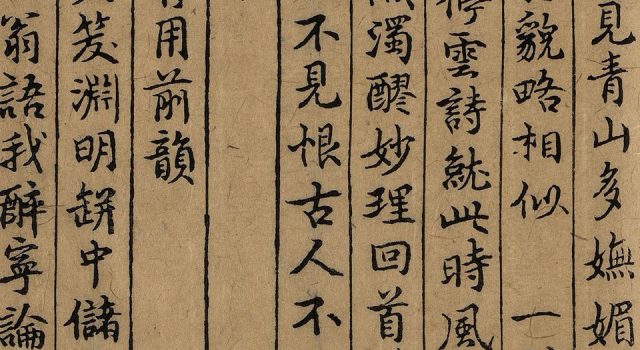 見青山多嫵媚
貌略相似 一
停雲詩就此時風
濁醪妙理回首
不見恨古人不
用前韻
笑淵明缾中儲
翁語我醉寧論